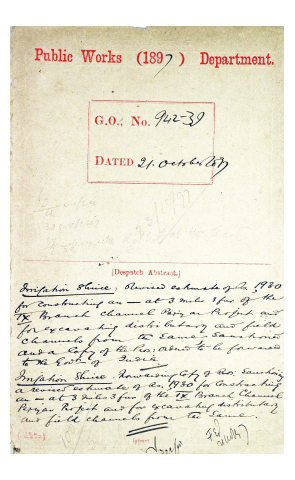 Public Works (1897) Department.
G.O., No. 942-39
DATED 21. October 97
[Despatch Abstract.]
Irrigation Sluice, Revised estimate of Rs. 1930
for constructing an — at 3 miles 3 fur of the
IX Branch Channel Periyar Project and
for excavating distributary and field
channels from the same Sanctioned
and a Copy of the Pro. ordered to be forwarded
to the Govt of India
Irrigation Sluice. Forwarding Copy of Pro. Sanctioning
a revised estimate of Rs. 1930 for Constructing
an — at 3 miles 3 fur of the IX Branch Channel
Periyar Project and for excavating distributary
and field channels from the Same.